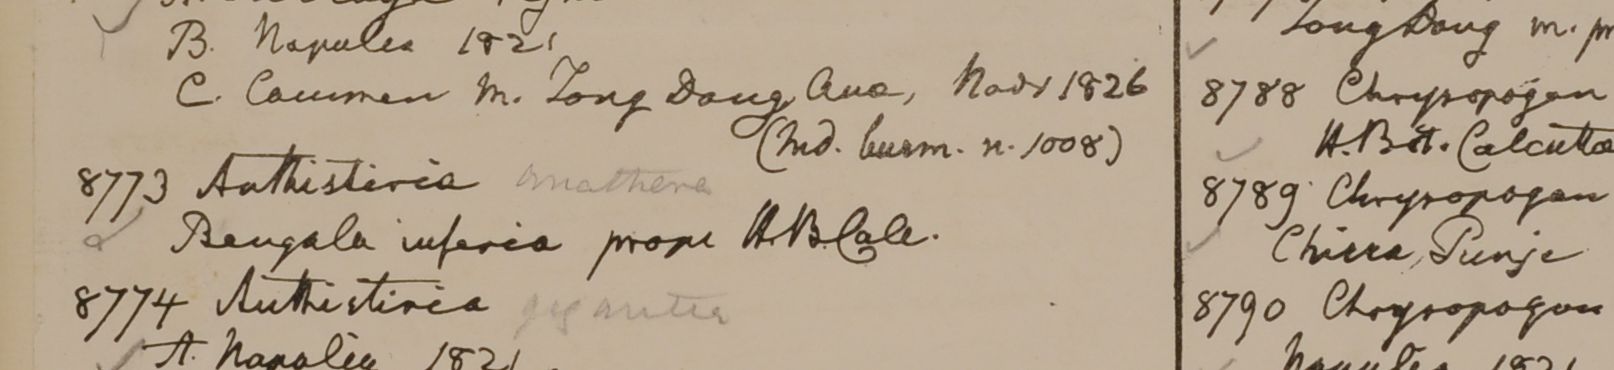 B. Napalea 1821
C. Caumen m. Tong Dong Ava, Novr 1826
(Ind. burm. n. 1008)
8773 Anthistiria anathera
Bengala inferia prope H.B.Calc.
8774 Anthistiria gigantea
A. Napalea 1821
Tong Dong m.
8788 Chrysopogon
H. Bot. Calcutta
8789 Chrysopogon
Chirra, Punje
8790 Chrysopogon
Napalea 1821